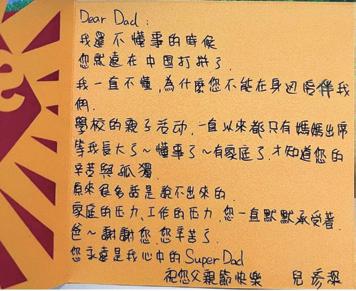 Dear Dad:
我還不懂事的時候
您就遠在中国打拼了.
我一直不懂,為什麼您不能在身边陪伴我
們.
學校的親子活动,一直以來都只有媽媽出席
等我長大了~懂事了~有家庭了.才知道您的
辛苦與孤獨.
原來很多話是說不出來的
家庭的压力.工作的压力.您一直默默承受著
爸~謝謝您.您辛苦了.
您永遠是我心中的Super Dad
祝您父親節快樂 兒彥